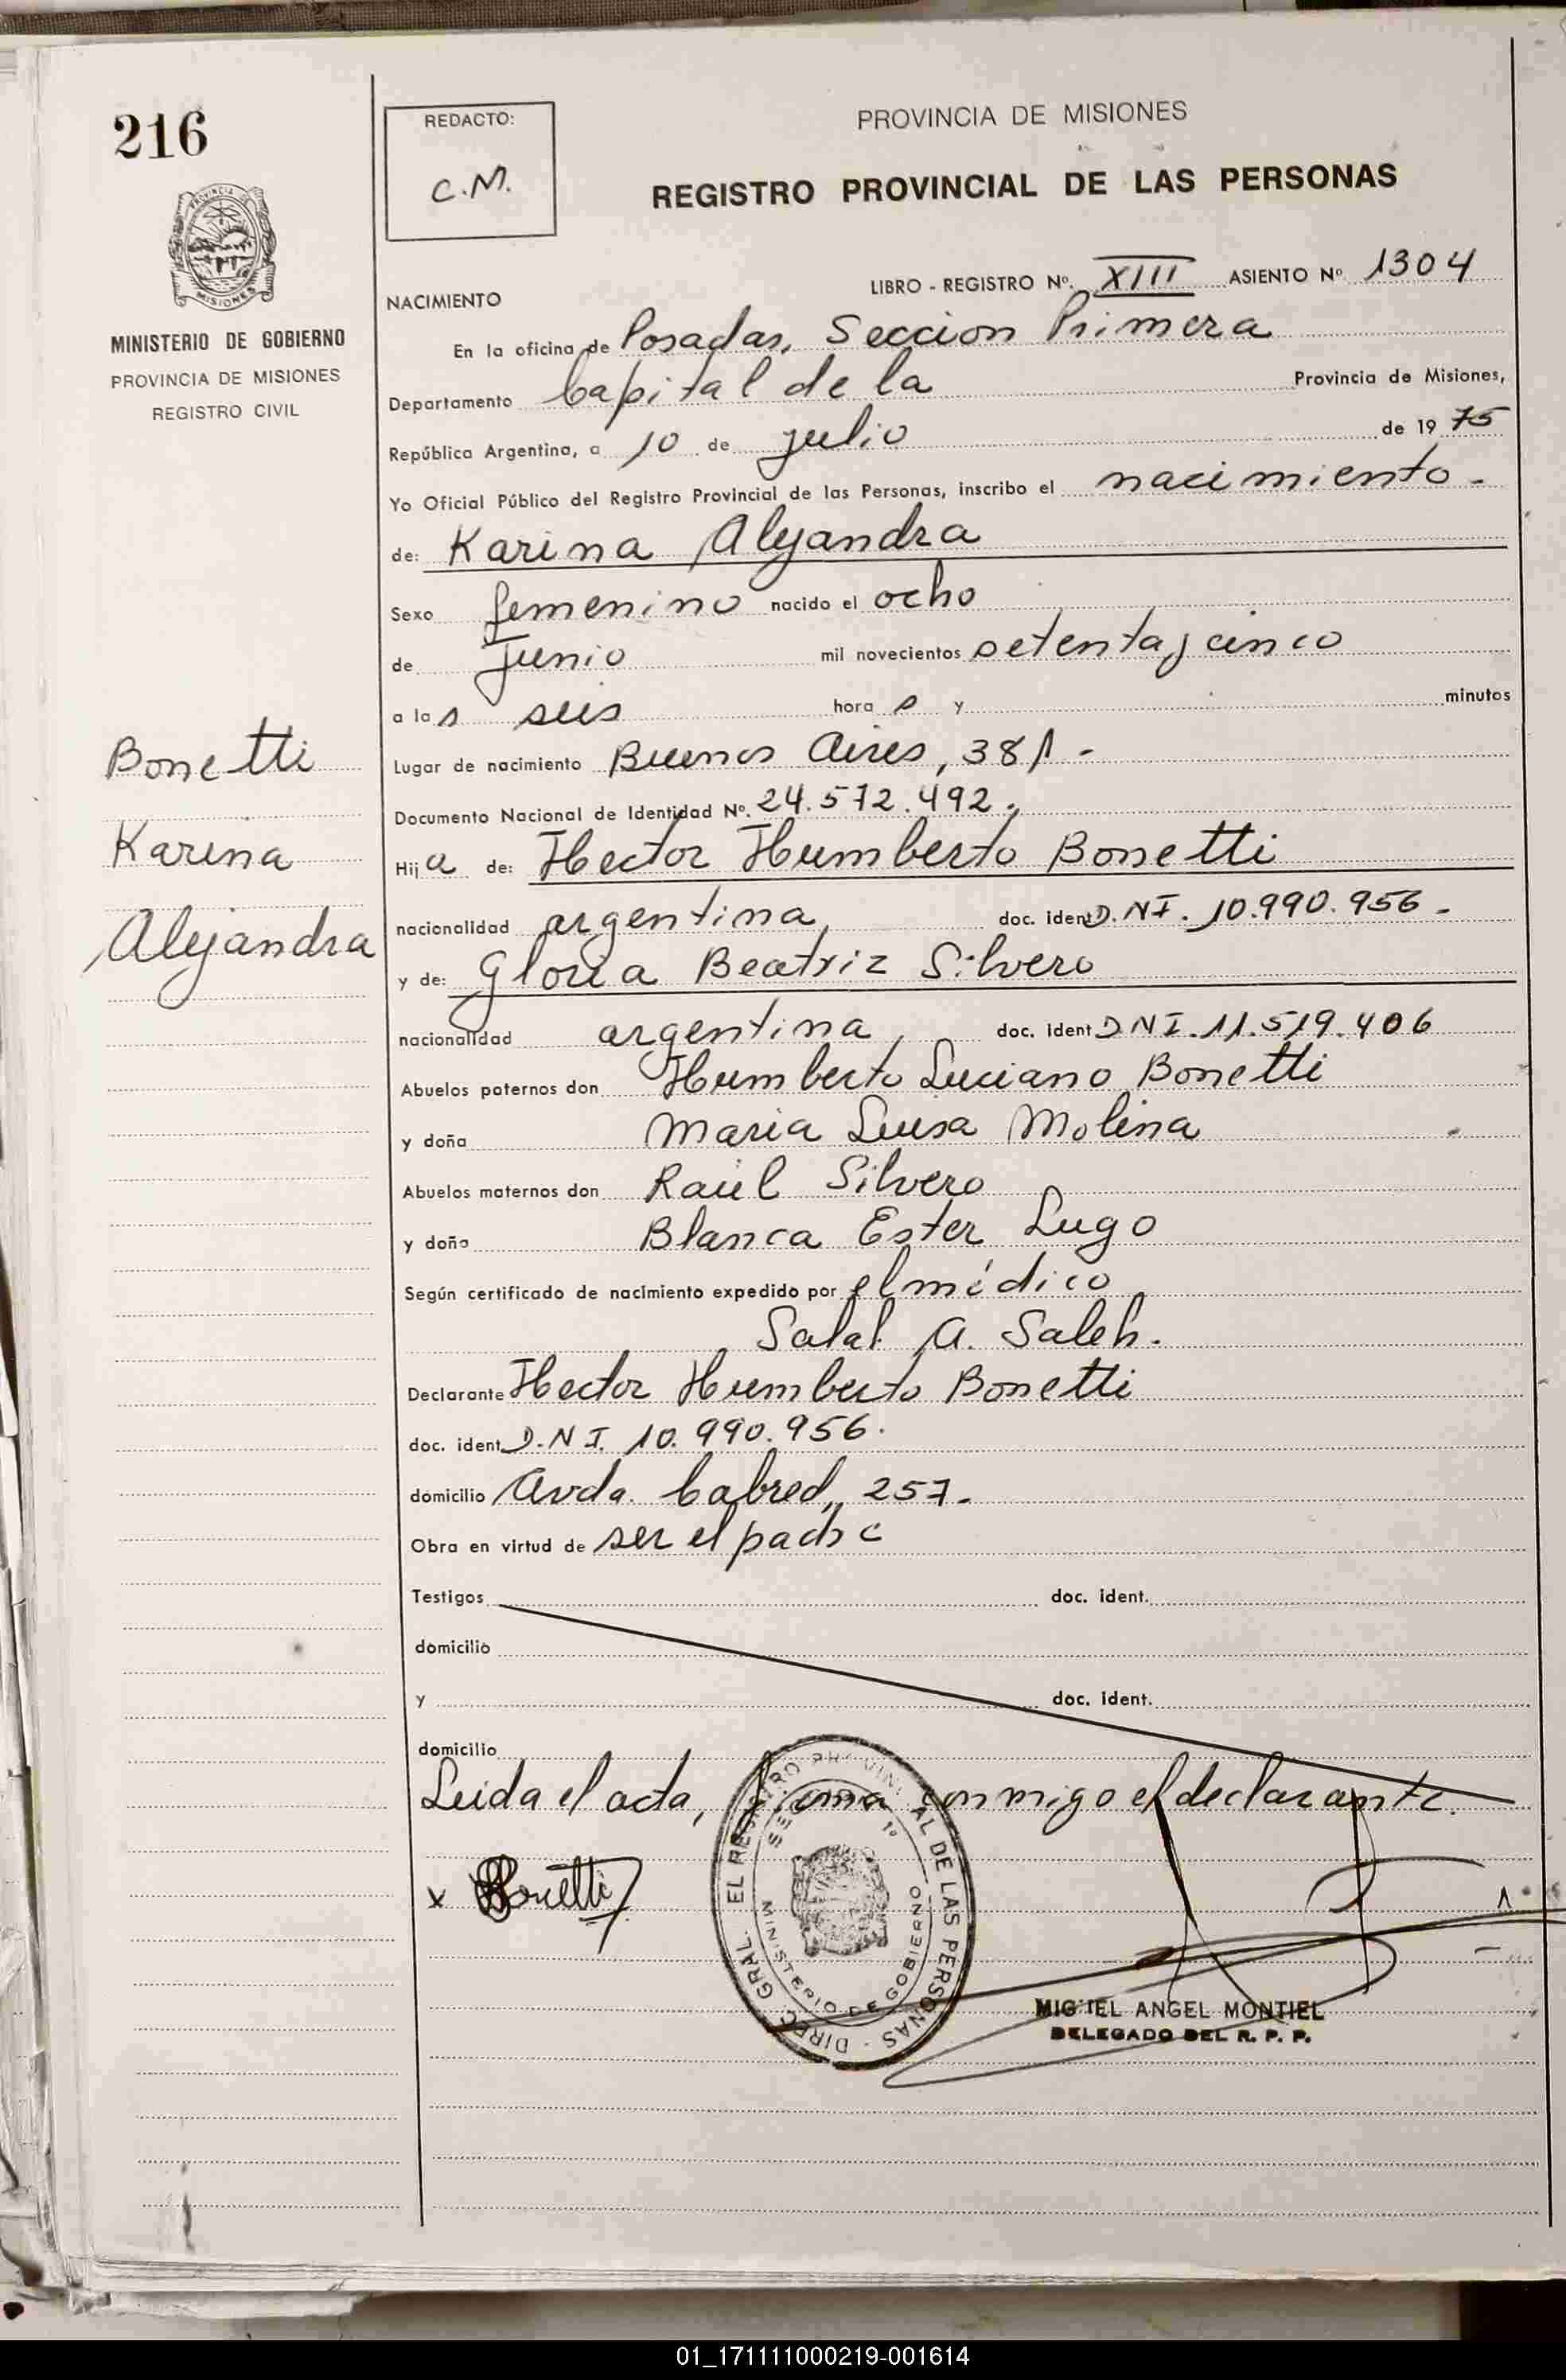 216
PROVINCIA
MISIONES
MINISTERIO DE GOBIERNO
PROVINCIA DE MISIONES
REGISTRO CIVIL
Bonetti
Karina
Alejandra
REDACTO:
C.M.
PROVINCIA DE MISIONES
REGISTRO PROVINCIAL DE LAS PERSONAS
LIBRO - REGISTRO Nº. XIII ASIENTO Nº. 1304
NACIMIENTO
En la oficina de Posadas, Seccion Primera
Departamento Capital de la Provincia de Misiones,
República Argentina, a 10 de julio de 19 75
Yo Oficial Público del Registro Provincial de las Personas, inscribo el nacimiento -
de: Karina Alejandra
Sexo femenino nacido el ocho
de Junio mil novecientos setenta y cinco
a las seis hora s y minutos
Lugar de nacimiento Buenos Aires, 381 -
Documento Nacional de Identidad Nº. 24.572.492.
Hija de: Hector Humberto Bonetti
nacionalidad argentina, doc. ident D.N.I. 10.990.956 -
y de: Gloria Beatriz Silvero
nacionalidad argentina, doc. ident D N I. 11.519.406
Abuelos paternos don Humberto Luciano Bonetti
y doña Maria Luisa Molina
Abuelos maternos don Raúl Silvero
y doña Blanca Ester Lugo
Según certificado de nacimiento expedido por el médico
Salal A. Saleh.
Declarante Hector Humberto Bonetti
doc. ident D.N I. 10.990.956.
domicilio Avda. Cabred, 257.
Obra en virtud de ser el padre
Testigos doc. ident.
domicilio
y doc. ident.
domicilio
Leida el acta, firma conmigo el declarante.
x Bonetti
DIREC. GRAL. EL REGISTRO PROVINCIAL DE LAS PERSONAS -
MINISTERIO DE GOBIERNO
MIGUEL ANGEL MONTIEL
DELEGADO DEL R. P. P.
01_171111000219-001614